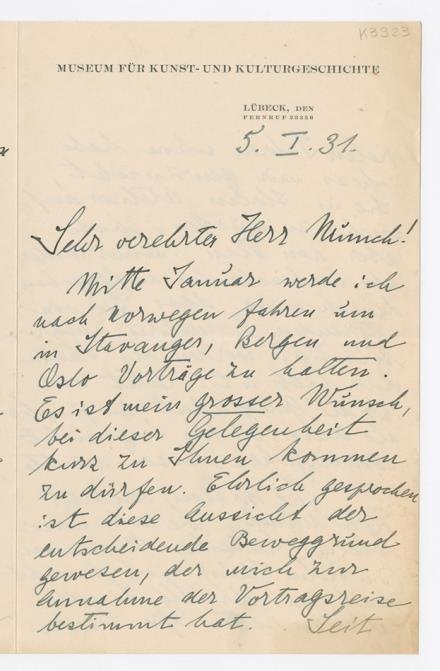 K3923
MUSEUM FÜR KUNST- UND KULTURGESCHICHTE
LÜBECK, DEN
FERNRUF 25356
5. I. 31.
Sehr verehrter Herr Munch!
Mitte Januar werde ich
nach Norwegen fahren um
in Stavanger, Bergen und
Oslo Vorträge zu halten.
Es ist mein grosser Wunsch,
bei dieser Gelegenheit
kurz zu Ihnen kommen
zu dürfen. Ehrlich gesprochen
ist diese Aussicht der
entscheidende Beweggrund
gewesen, der mich zur
Annahme der Vortragsreise
bestimmt hat. Seit